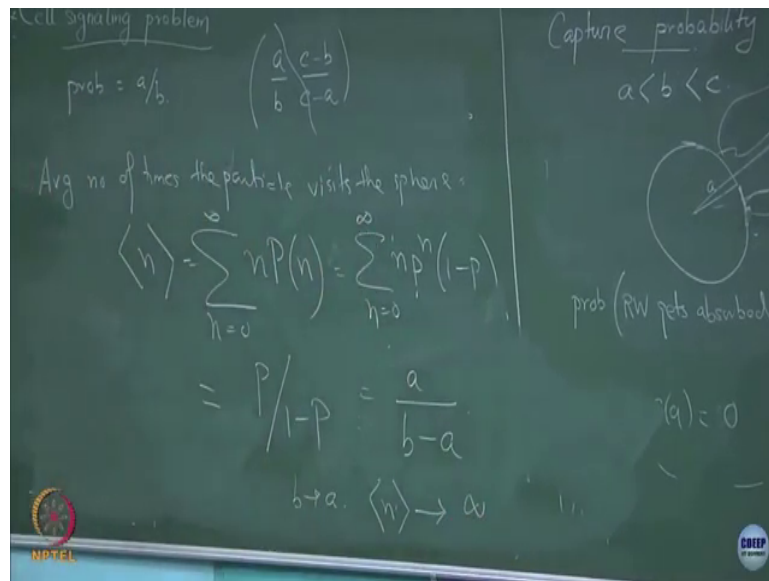 Cell signaling problem
prob = a/b. (a/b c-b/c-a)
Avg no of times the particle visits the sphere =
⟨n⟩ = ∑_{n=0}^{∞} n P(n) = ∑_{n=0}^{∞} n p^n (1-p)
= P/1-P = a/b-a
b→a. ⟨n⟩ → ∞
Capture probability
a < b < c.
a
prob (RW gets absorbed
(a) = 0
NPTEL
CDEEP
IIT BOMBAY